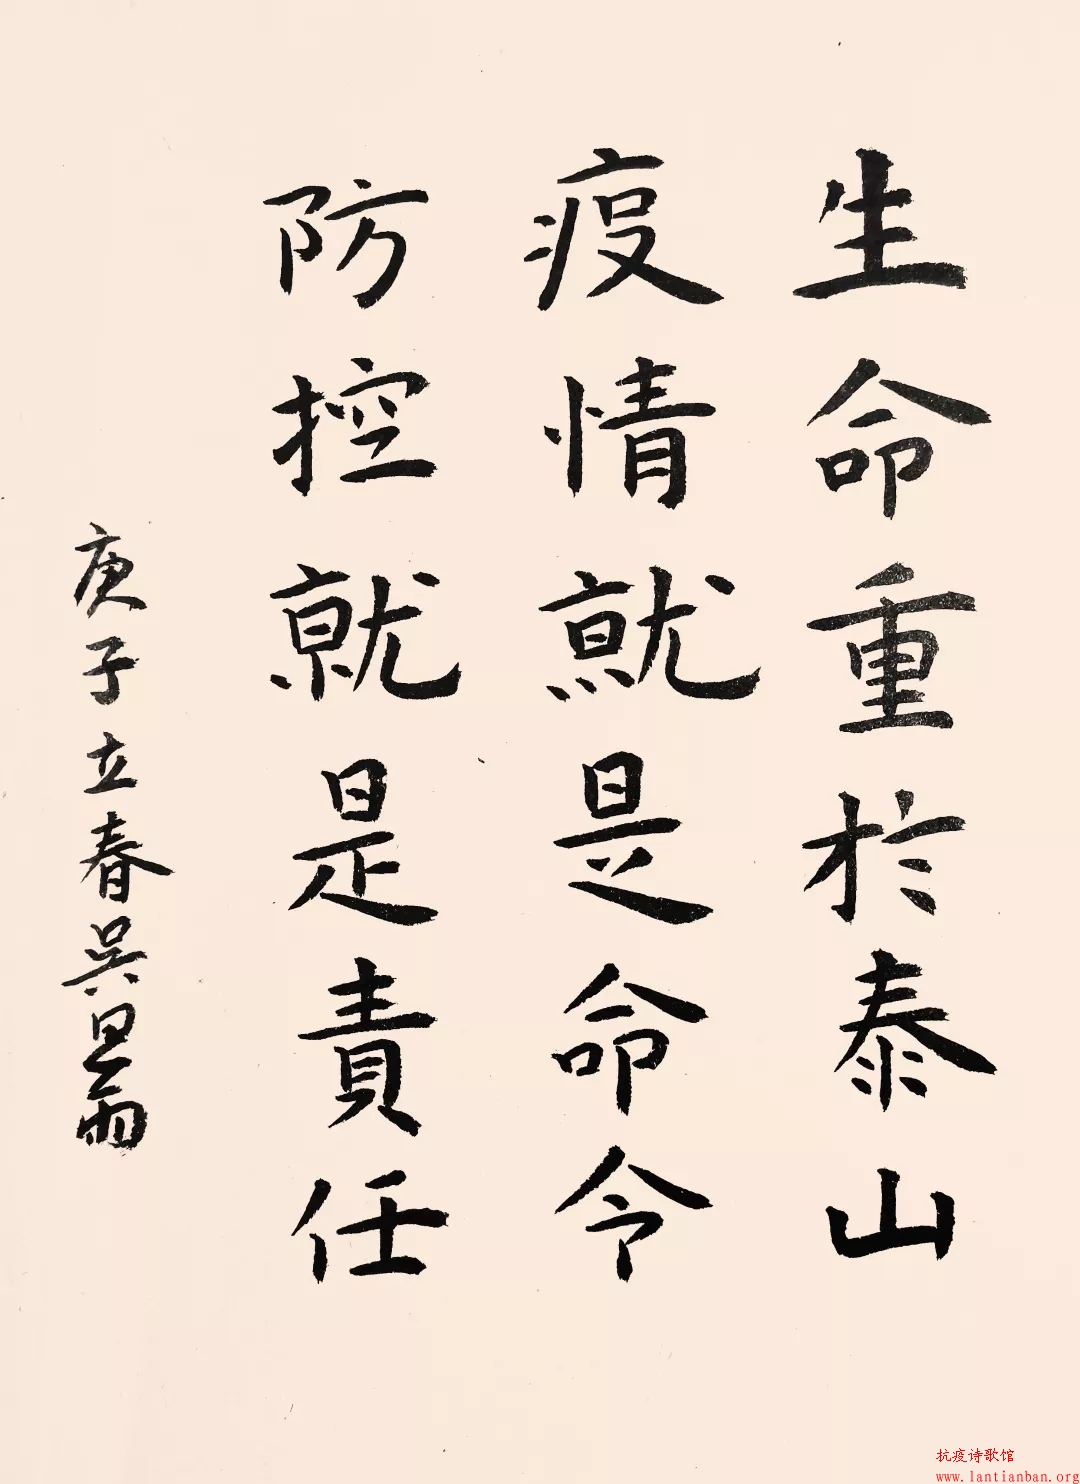 生命重於泰山
疫情就是命令
防控就是責任
庚子立春吳昱雨
抗疫诗歌馆
www.lantianban.org